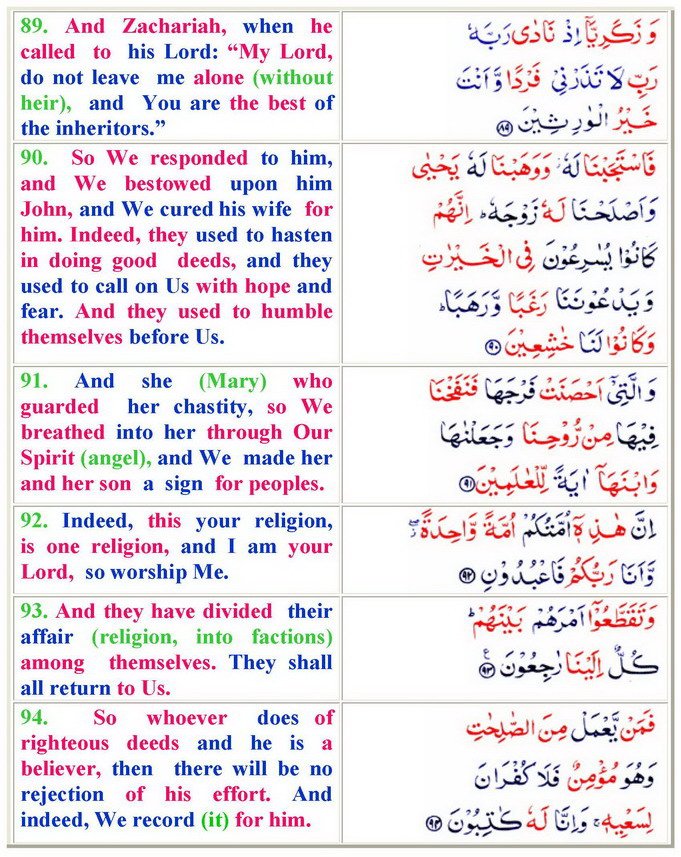 89. And Zachariah, when he
called to his Lord: “My Lord,
do not leave me alone (without
heir), and You are the best of
the inheritors.”
وَ زَكَرِيَّآ اِذْ نَادٰى رَبَّهٗ
رَبِّ لَا تَذَرْنِيْ فَرْدًا وَّاَنْتَ
خَيْرُ الْوٰرِثِيْنَ ۸۹
90. So We responded to him,
and We bestowed upon him
John, and We cured his wife for
him. Indeed, they used to hasten
in doing good deeds, and they
used to call on Us with hope and
fear. And they used to humble
themselves before Us.
فَاسْتَجَبْنَا لَهٗ وَوَهَبْنَا لَهٗ يَحْيٰى
وَاَصْلَحْنَا لَهٗ زَوْجَهٗ ؕ اِنَّهُمْ
كَانُوْا يُسٰرِعُوْنَ فِى الْخَيْرٰتِ
وَيَدْعُوْنَنَا رَغَبًا وَّرَهَبًا ؕ
وَكَانُوْا لَنَا خٰشِعِيْنَ ۹۰
91. And she (Mary) who
guarded her chastity, so We
breathed into her through Our
Spirit (angel), and We made her
and her son a sign for peoples.
وَ الَّتِيْٓ اَحْصَنَتْ فَرْجَهَا فَنَفَخْنَا
فِيْهَا مِنْ رُّوْحِنَا وَجَعَلْنٰهَا
وَابْنَهَآ اٰيَةً لِّلْعٰلَمِيْنَ ۹۱
92. Indeed, this your religion,
is one religion, and I am your
Lord, so worship Me.
اِنَّ هٰذِهٖٓ اُمَّتُكُمْ اُمَّةً وَّاحِدَةً ۖ
وَّاَنَا رَبُّكُمْ فَاعْبُدُوْنِ ۹۲
93. And they have divided their
affair (religion, into factions)
among themselves. They shall
all return to Us.
وَتَقَطَّعُوْٓا اَمْرَهُمْ بَيْنَهُمْ ؕ
كُلٌّ اِلَيْنَا رٰجِعُوْنَ ۹۳
94. So whoever does of
righteous deeds and he is a
believer, then there will be no
rejection of his effort. And
indeed, We record (it) for him.
فَمَنْ يَّعْمَلْ مِنَ الصّٰلِحٰتِ
وَهُوَ مُؤْمِنٌ فَلَا كُفْرَانَ
لِسَعْيِهٖ ۚ وَاِنَّا لَهٗ كٰتِبُوْنَ ۹۴